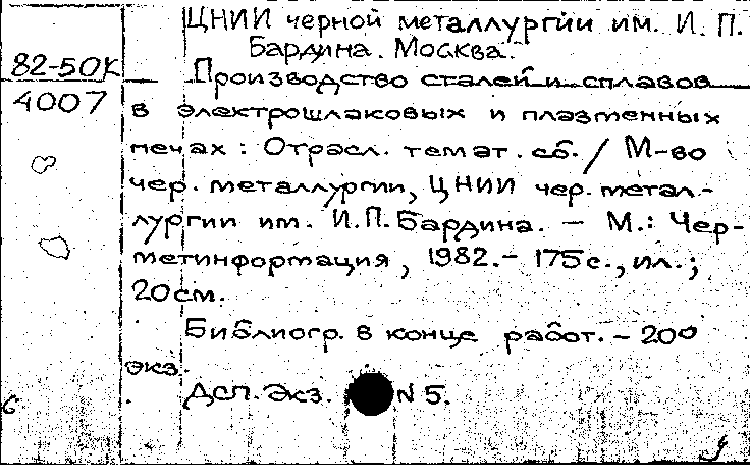 ЦНИИ черной металлургии им. И. П.
Бардина. Москва.
82-50К
Производство сталей и сплавов
4007
в электрошлаковых и плазменных
печах : Отрасл. темат. сб. / М-во
чер. металлургии, ЦНИИ чер. метал-
лургии им. И.П. Бардина. — М.: Чер-
метинформация, 1982. - 175 с., ил.;
20 см.
Библиогр. в конце работ. - 200
экз.
Дсп. Экз. N 5.